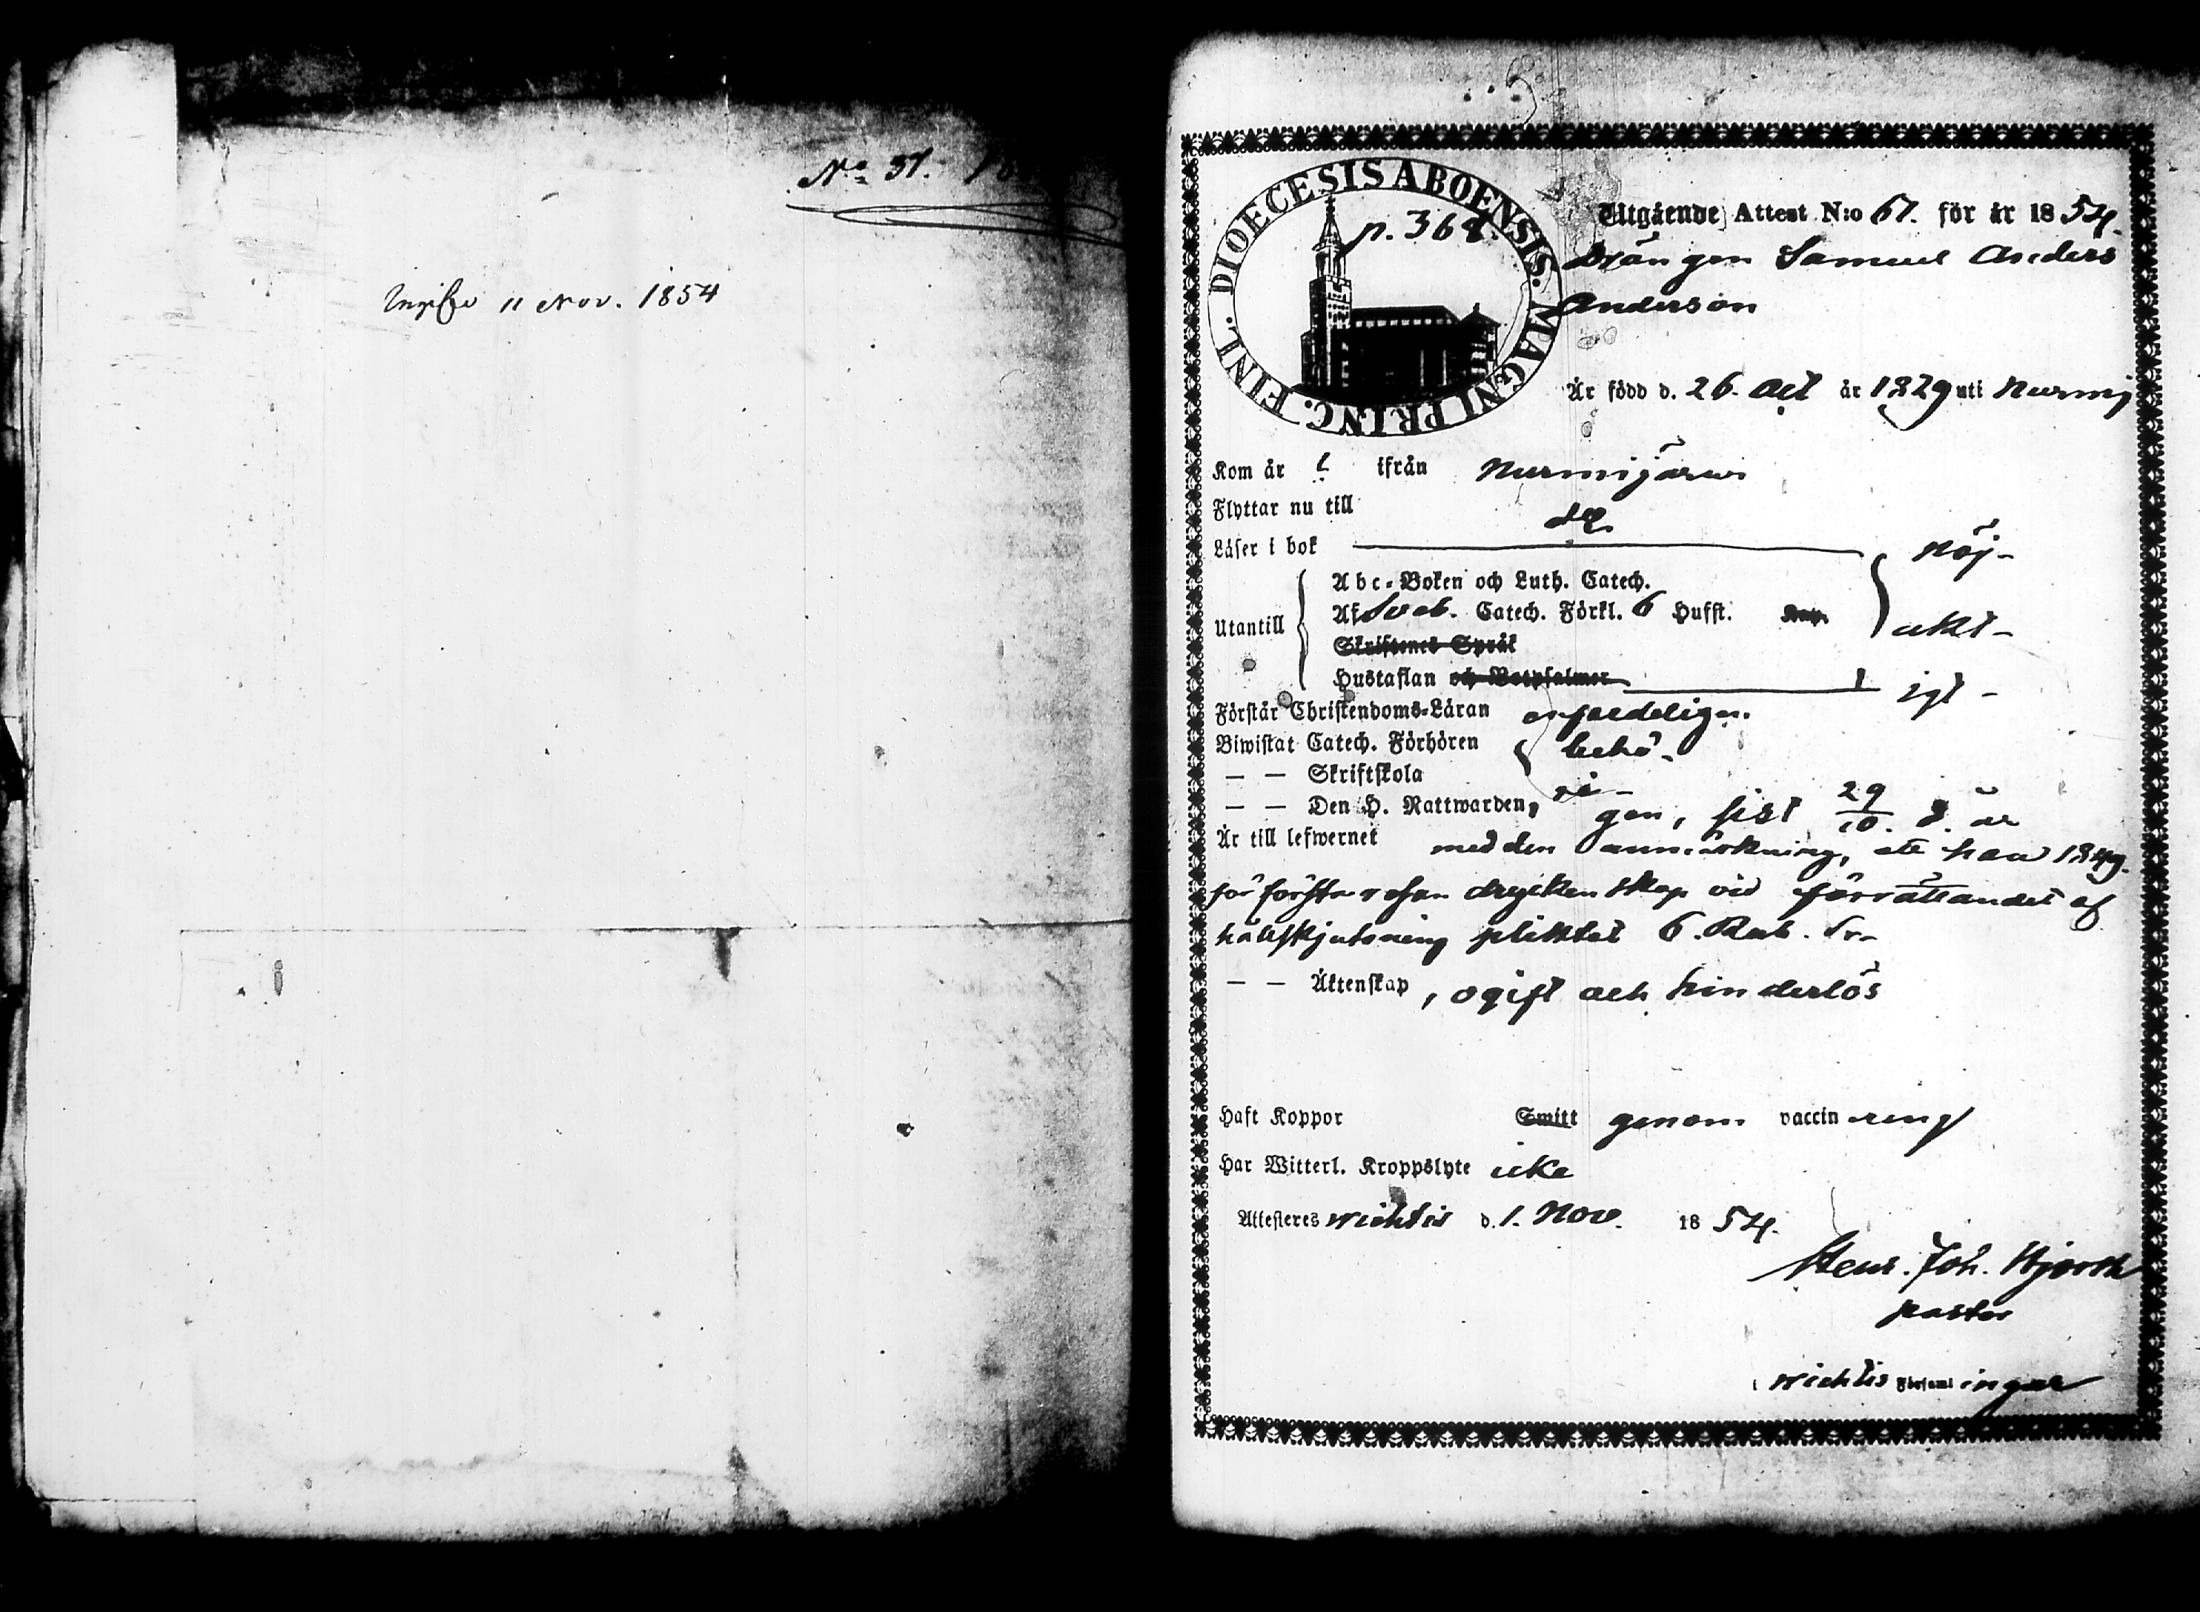 No 37.
11 Nov. 1854
DIOECESIS ABOENSIS. MAGNI PRINC. FINL.
p. 368.
Utgående Attest N:o 67. för år 1854.
Drängen Samuel Anders
Anderson
Är född d. 26. Oct år 1829 uti Nurmij
Kom år ifrån Nurmijärwi
Flyttar nu till
Läser i bok nöj-
Abc-Boken och Luth. Catech.
Utantill Af Sveb. Catech. Förkl. 6 Hufst. akt-
Skriftenes Språk
Hustaflan och Botpsalmer igt -
Förstår Christendoms-Läran
Biwistat Catech. Förhören behö-
— — Skriftskola ri-
— — Den H. Nattwarden, gen, sist 29/10. d. år
Är till lefwernet med den anmärkning, att han 1849.
för första resan dryckenskap vid förrättandet af
hållskjutsning pliktat 6. Rub. Sr.
— — Äktenskap, ogift och hinderlös
Haft Koppor Smitt genom vaccinering
Har Witterl. Kroppslyte icke
Attesteras Wichtis d. 1. Nov. 1854.
Henr. Joh. Hjorth
pastor
i Wichtis Församlingar